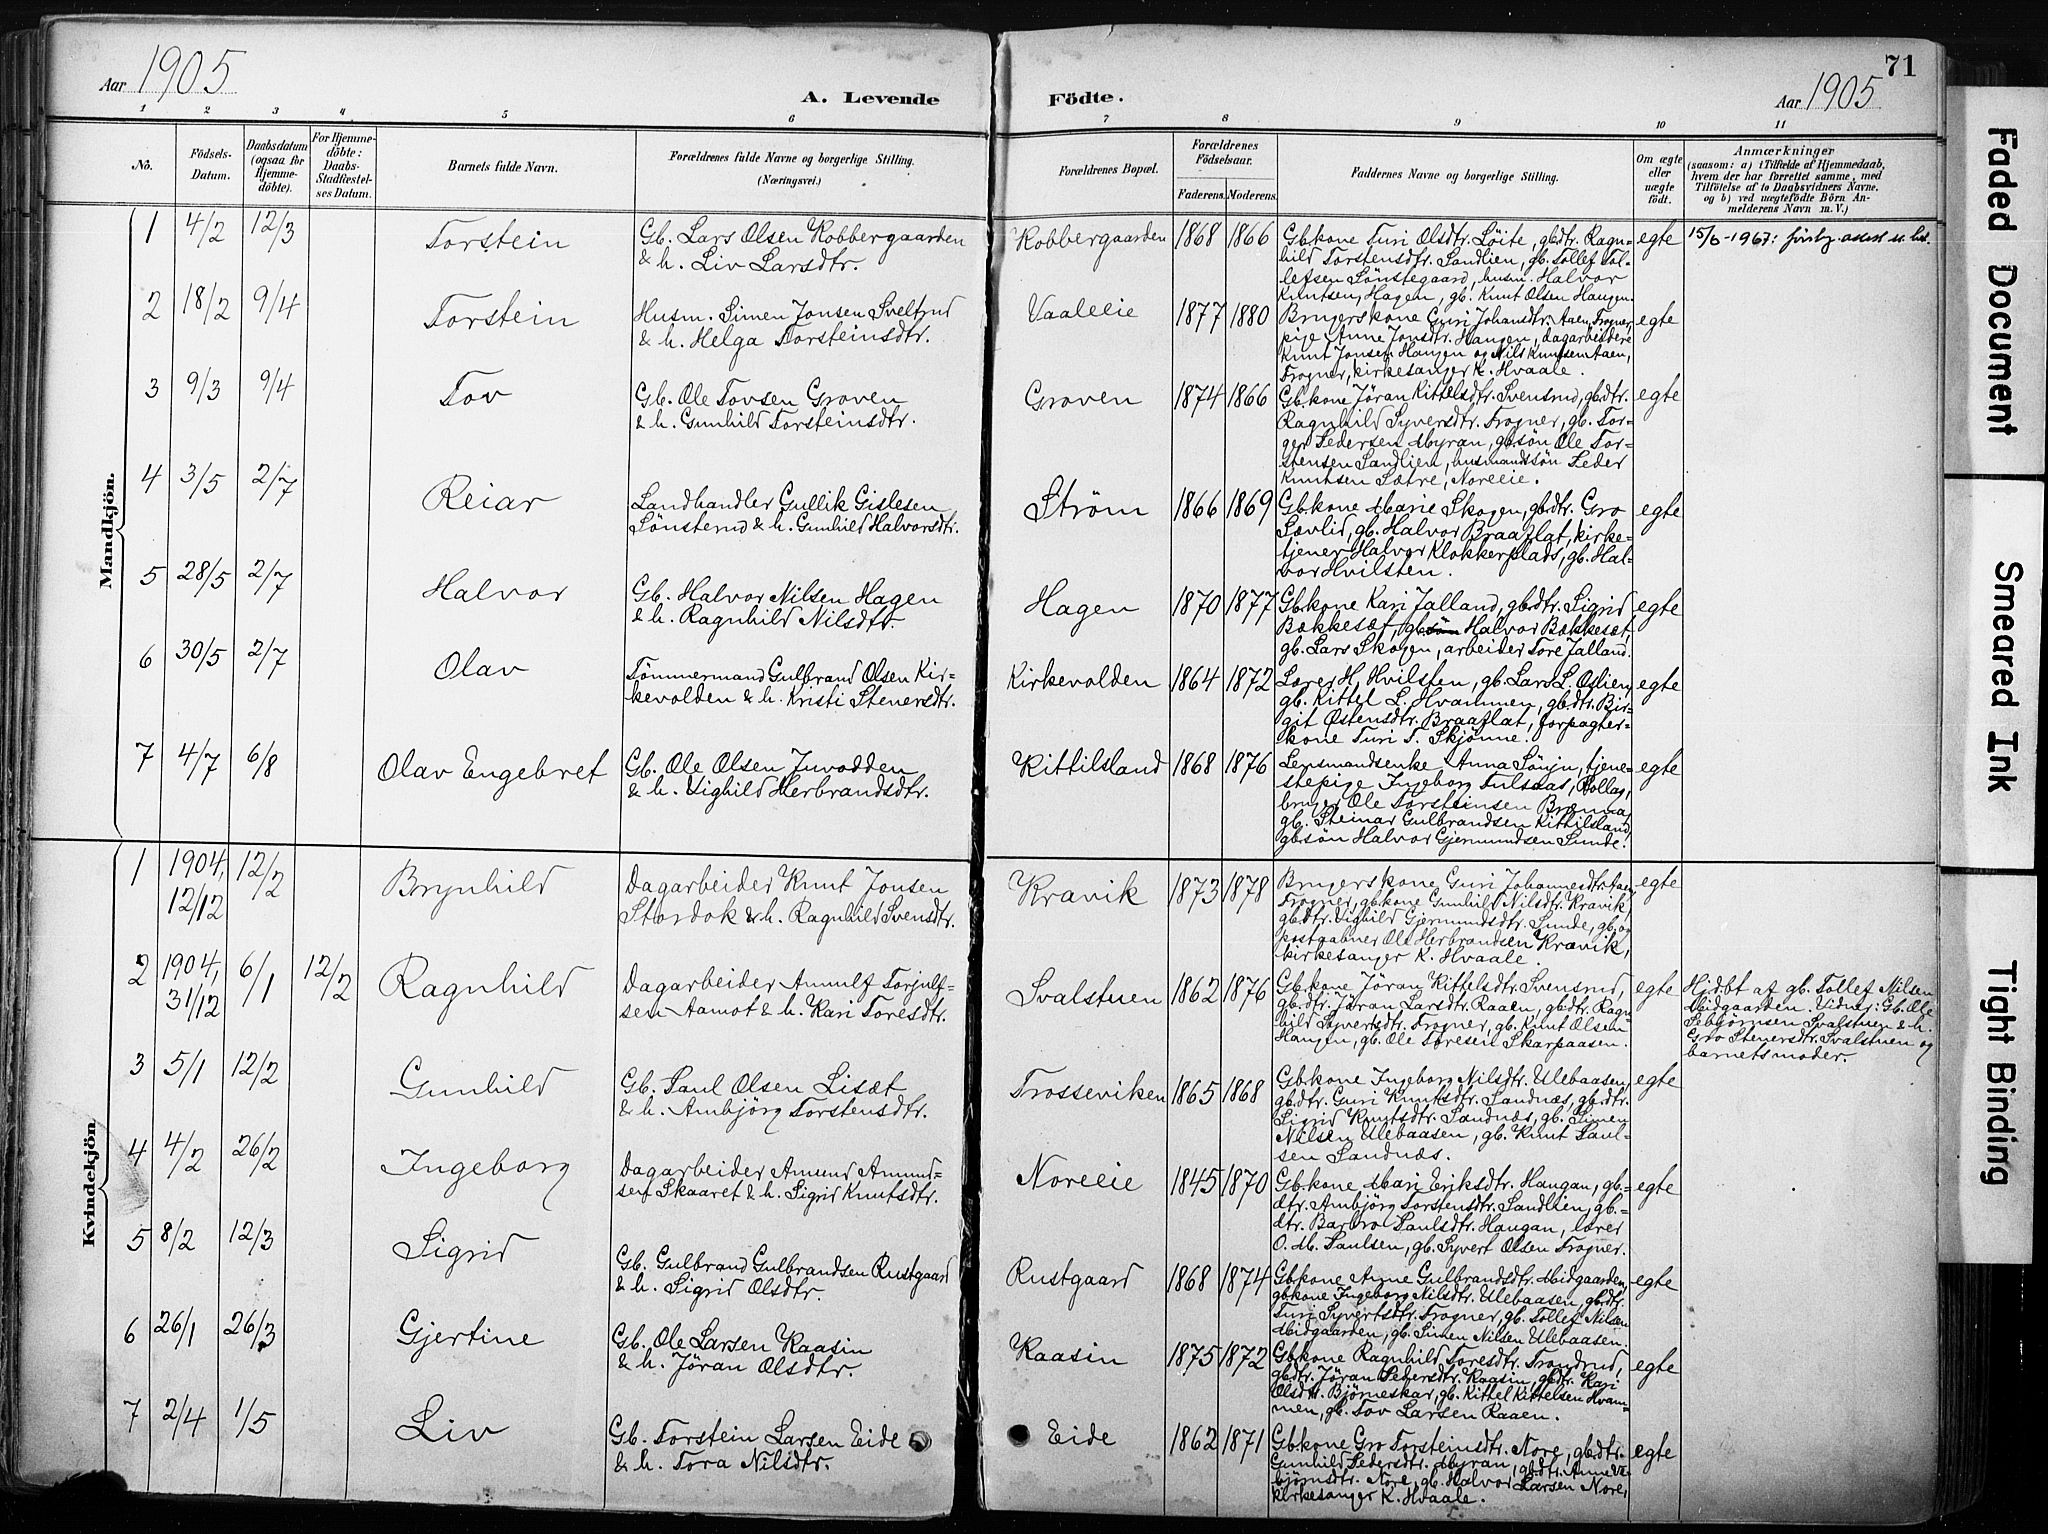 Aar 1905
A. Levende
Födte.
Aar 1905
71
1 2 3 4 5 6 7 8 9 10 11
No.
Födsels-
Datum.
Daabsdatum
(ogsaa for
Hjemme-
döbte).
For Hjemme-
döbte:
Daabs-
Stadfæstel-
ses Datum.
Barnets fulde Navn.
Forældrenes fulde Navne og borgerlige Stilling.
(Næringsvei.)
Forældrenes Bopæl.
Forældrenes
Födselsaar.
Faderens. Moderens.
Faddernes Navne og borgerlige Stilling.
Om ægte
eller
uægte
födt.
Anmærkninger
(saasom: a) i Tilfælde af Hjemmedaab,
hvem der har forrettet samme, med
Tilföielse af to Daabsvidners Navne.
og b) ved uægtefödte Börn An-
melderens Navn m. V.)
Mandkjön.
1 4/2 12/3 Torstein
Gb. Lars Olsen Kobbergaarden
& h. Liv Larsdtr.
Kobbergaarden 1868 1866
Gbkone Turi Olsdtr. Löite, gbdtr. Ragn-
hild Torstensdtr. Sandlien, gb. Tollef Tol-
lefsen Sönstegaard, husm. Halvor
Knutsen, Hagen, gb. Knut Olsen Haugen.
egte
15/6-1967:
2 18/2 9/4 Torstein
Husm. Simen Jonsen Sveltrud
& h. Helga Torsteinsdtr.
Vaaleeie 1877 1880
Brugerskone Guri Johansdtr. Aaen, Frogner,
pige Anne Jonsdtr. Haugen, dagarbeidere
Knut Jonsen Haugen og Nils Knutsen Aaen,
Frogner, kirkesanger K. Hvaale.
egte
3 9/3 9/4 Tov
Gb. Ole Tovsen Groven
& h. Gunhild Torsteinsdtr.
Groven 1874 1866
Gbkone Jöran Kittelsdtr. Svensrud, gbdtr.
Ragnhild Syversdtr. Frogner, gb. Tor-
ger Pedersen Myran, gbsön Ole Tor-
stensen Sandlien, husmandssön Peder
Knutsen Sætre, Noreeie.
egte
4 3/5 2/7 Reiar
Landhandler Gullik Gislesen
Sönsterud & h. Gunhild Halvorsdtr.
Ström 1866 1869
Gbkone Marie Skogen, gbdtr. Gro
Sævlid, gb. Halvor Braaflat, kirke-
tjener Halvor Klokkerplads, gb. Hal-
vor Hvilsten.
egte
5 28/5 2/7 Halvor
Gb. Halvor Nilsen Hagen
& h. Ragnhild Nilsdtr.
Hagen 1870 1877
Gbkone Kari Jalland, gbdtr. Sigrid
Bækkesæt, gbsön Halvor Bækkesæt,
gb. Lars Skogen, arbeider Tore Jalland.
egte
6 30/5 2/7 Olav
Tömmermand Gulbrand Olsen Kir-
kevolden & h. Kristi Stenersdtr.
Kirkevolden 1864 1872
Lærer H. Hvilsten, gb. Lars L. Oslien,
gb. Kittel L. Hvammen, gbdtr. Bir-
git Ostensdtr. Braaflat, forpagter-
kone Turi T. Skjönne.
egte
7 4/7 6/8 Olav Engebret
Gb. Ole Olsen Juvodden
& h. Vighild Herbrandsdtr.
Kittilsland 1868 1876
Lensmandsenke Anna Sönju, tjene-
stepige Ingeborg Fulsaas, Rollag,
bruger Ole Torsteinsen Brænna,
gb. Steinar Gulbrandsen Kittilsland,
gbsön Halvor Gjermundsen Sunde.
egte
Kvindekjön
1 1904, 12/12 12/2 Brynhild
Dagarbeider Knut Jonsen
Stordok & h. Ragnhild Svensdtr.
Kravik 1873 1878
Brugerskone Guri Johannesdtr. Aaen,
Frogner, gbkone Gunhild Nilsdtr. Kravik,
gbdtr. Vighild Gjermundsdtr. Sunde, gb. og
postaabner Ole Herbrandsen Kravik,
kirkesanger K. Hvaale.
egte
2 1904, 31/12 6/1 12/2 Ragnhild
Dagarbeider Anmulf Torjulf-
sen Aamot & h. Kari Toresdtr.
Svalstuen 1862 1876
Gbkone Jöran Kittelsdtr. Svensrud,
gbdtr. Jöran Larsdtr. Raaen, gbdtr. Ragn-
hild Syvertsdtr. Frogner, gb. Knut Olsen
Haugen, gb. Ole Toresen Skarpaasen.
egte
Hjdbt af gb. Tollef Nilsen
Midgaarden. Vidner: Gb. Ole
Sebjörnsen Svalstuen & h.
Gro Stenersdtr. Svalstuen og
barnets moder.
3 5/1 12/2 Gunhild
Gb. Paul Olsen Lisæt
& h. Ambjörg Torstensdtr.
Trosseviken 1865 1868
Gbkone Ingeborg Nilsdtr. Ulebaasen,
gbdtr. Guri Knutsdtr. Sandnæs, gbdtr.
Sigrid Knutsdtr. Sandnæs, gb. Simen
Nilsen Ulebaasen, gb. Knut Paul-
sen Sandnæs.
egte
4 4/2 26/2 Ingeborg
Dagarbeider Amund Amund-
sen Skaaret & h. Sigrid Knutsdtr.
Noreeie 1845 1870
Gbkone Mari Eriksdtr. Haugan, gb.-
dtr. Ambjörg Torstensdtr. Sandlien, gb.-
dtr. Barbro Paulsdtr. Haugan, lærer
O. M. Paulsen, gb. Syvert Olsen Frogner.
egte
5 8/2 12/3 Sigrid
Gb. Gulbrand Gulbrandsen Rustgaard
& h. Sigrid Olsdtr.
Rustgaard 1868 1874
Gbkone Anne Gulbrandsdtr. Midgaarden,
gbkone Ingeborg Nilsdtr. Ulebaasen, gbdtr.
Turi Syvertsdtr. Frogner, gb. Tollef Nilsen
Midgaarden, gb. Simen Nilsen Ulebaasen.
egte
6 26/1 26/3 Gjertine
Gb. Ole Larsen Kaasin
& h. Jöran Olsdtr.
Kaasin 1875 1872
Gbkone Ragnhild Toresdtr. Trondrud,
gbdtr. Jöran Pedersdtr. Kaasin, gbdtr. Kari
Olsdtr. Björneskar, gb. Kittel Kittelsen Hvam-
men, gb. Tov Larsen Raaen.
egte
7 2/4 1/5 Liv
Gb. Torstein Larsen Eide
& h. Tora Nilsdtr.
Eide 1862 1871
Gbkone Gro Torsteinsdtr. Nore, gbdtr.
Gunhild Pedersdtr. Myran, gbdtr. Anne Ve-
björnsdtr. Nore, gb. Halvor Larsen Nore,
kirkesanger K. Hvaale.
egte
Faded Document
Smeared Ink
Tight Binding